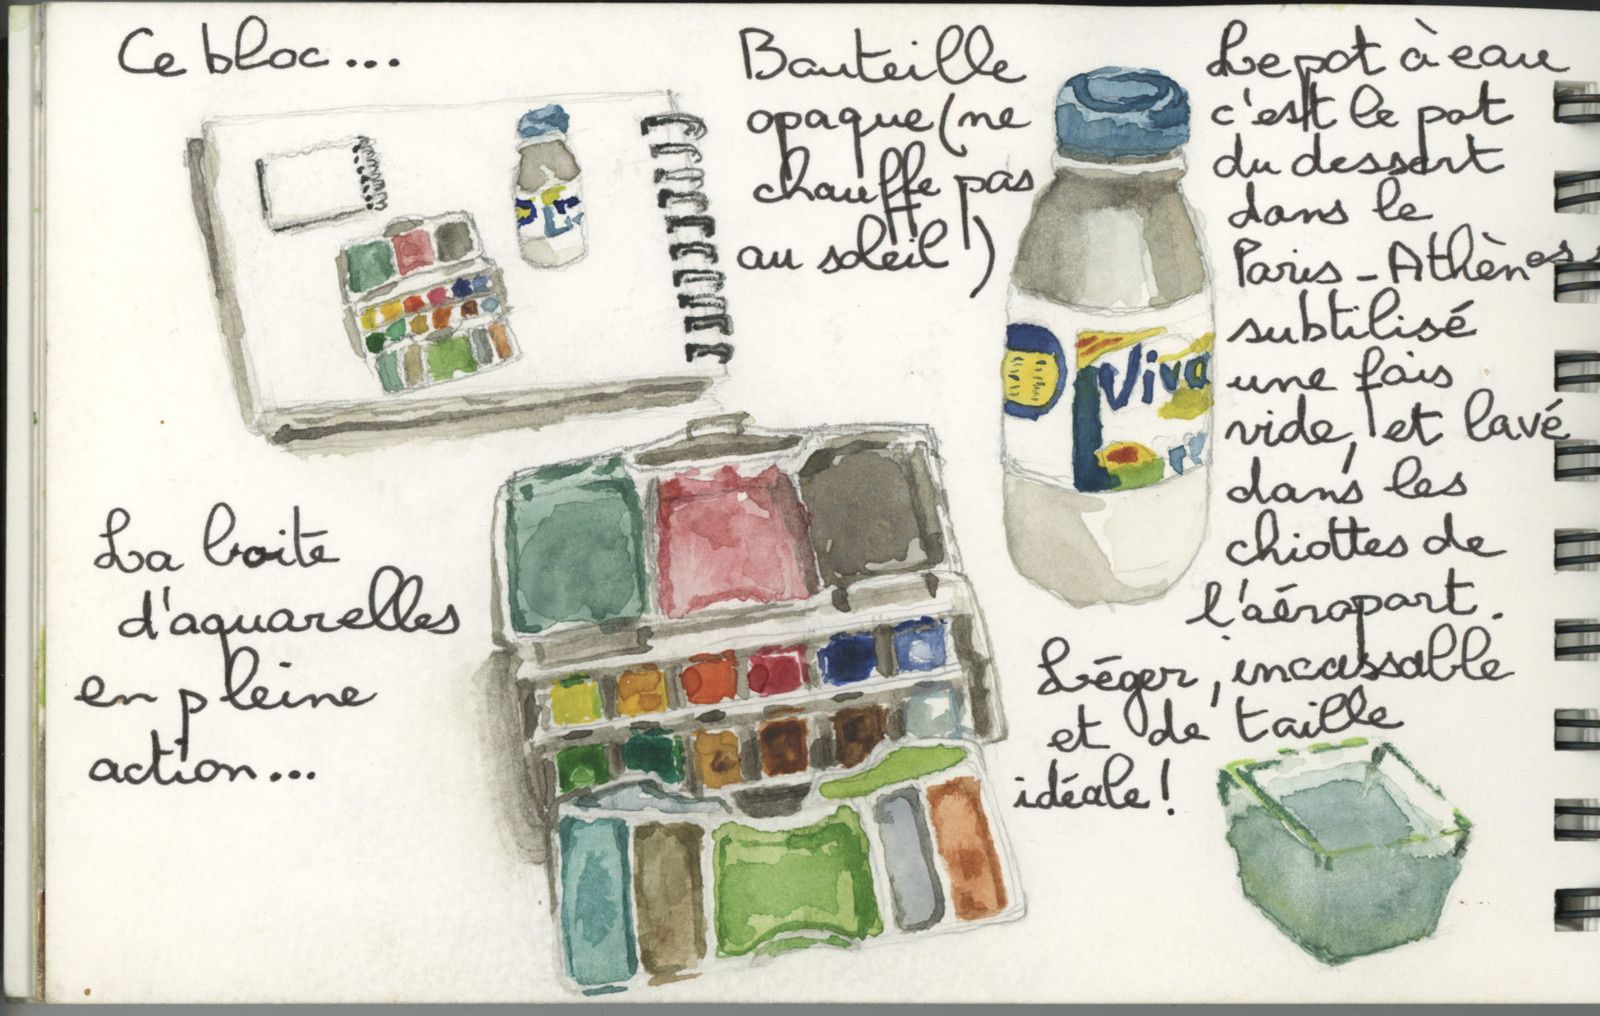 Ce bloc...
Bouteille
opaque (ne
chauffe pas
au soleil)
Viva
Le pot à eau
c'est le pot
du dessert
dans le
Paris-Athènes
subtilisé
une fois
vide, et lavé
dans les
chiottes de
l'aéroport.
Léger, incassable
et de taille
idéale!
La boite
d'aquarelles
en pleine
action...